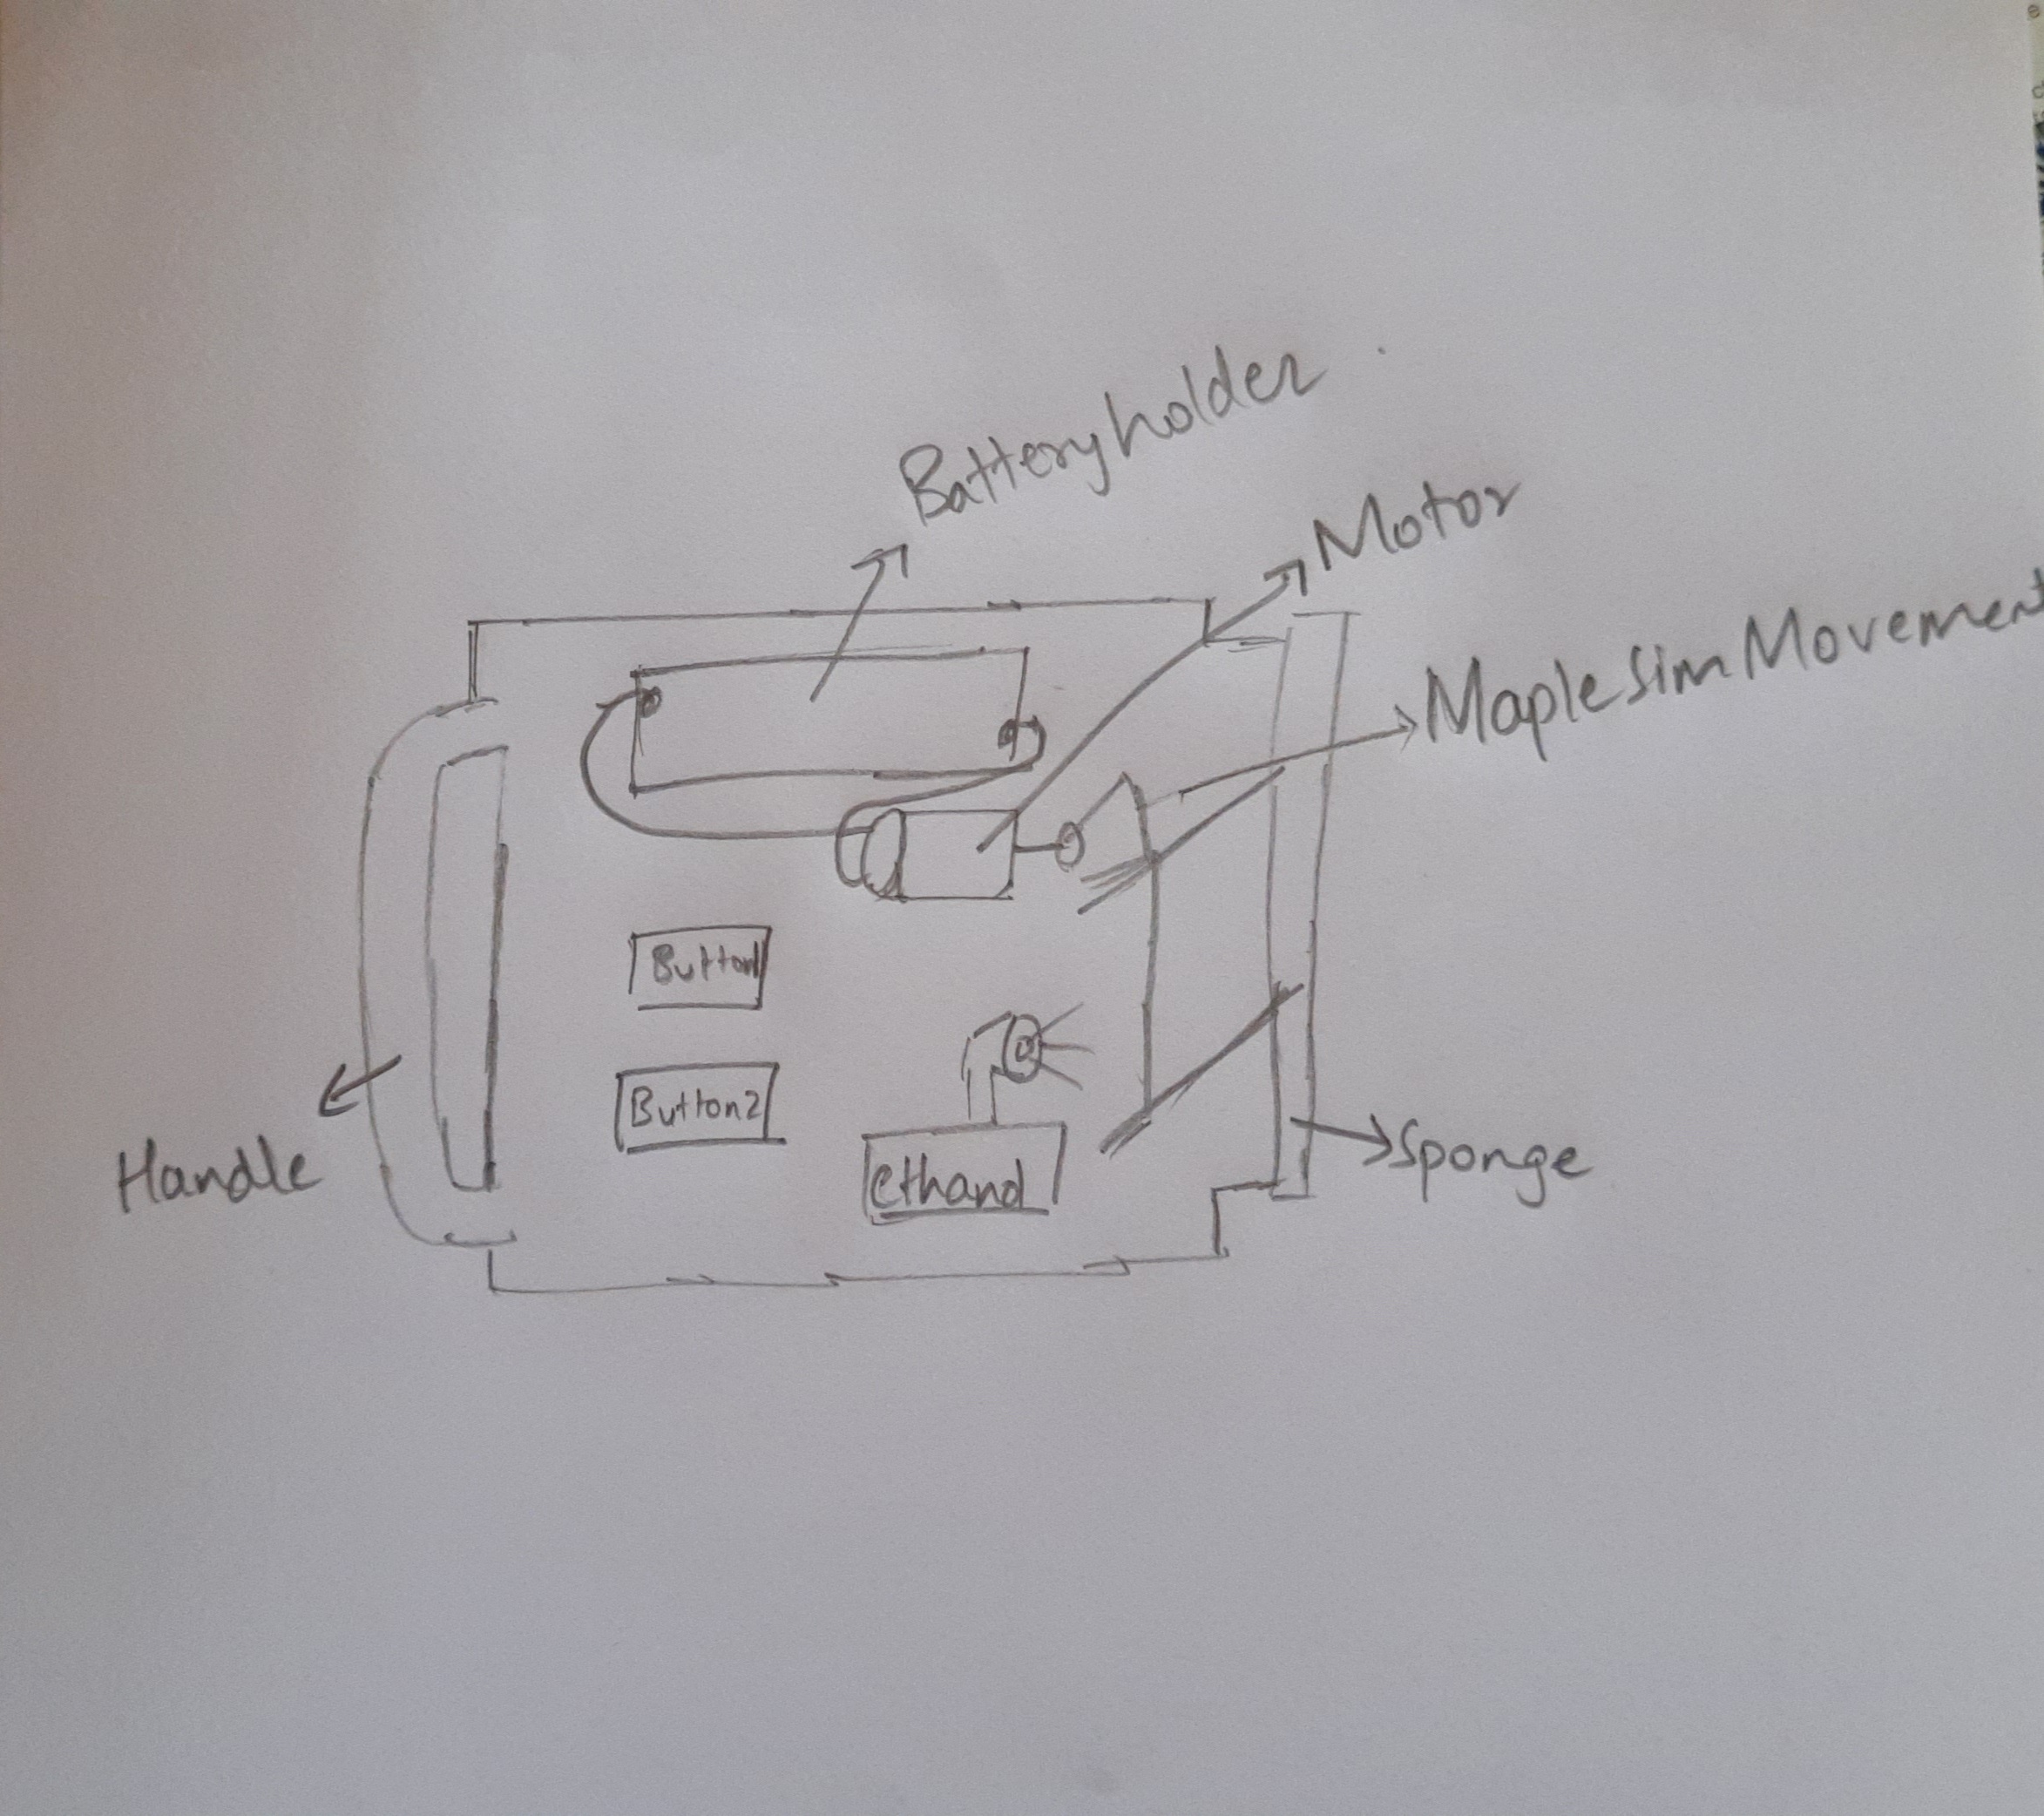 Battery holder
Motor
Maple sim Movement
Button1
Button2
ethand
Handle
Sponge